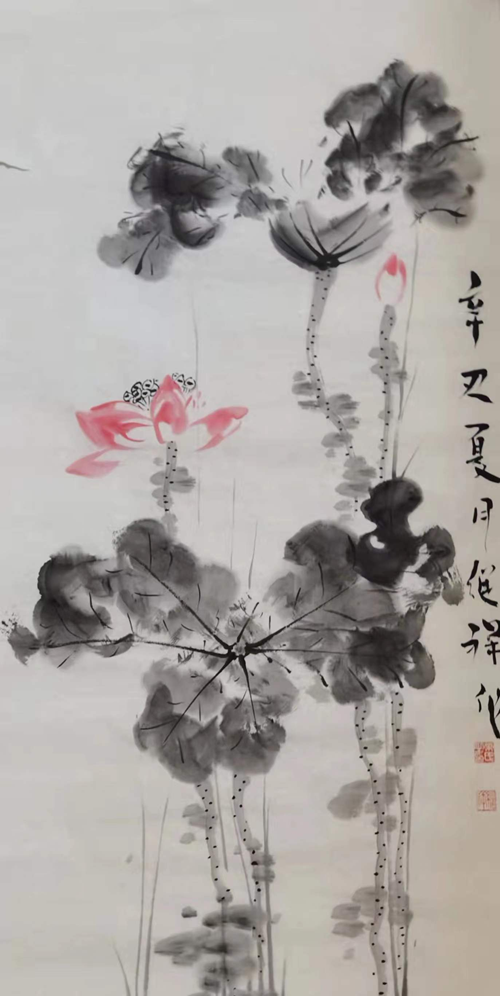 辛丑夏月继祥作